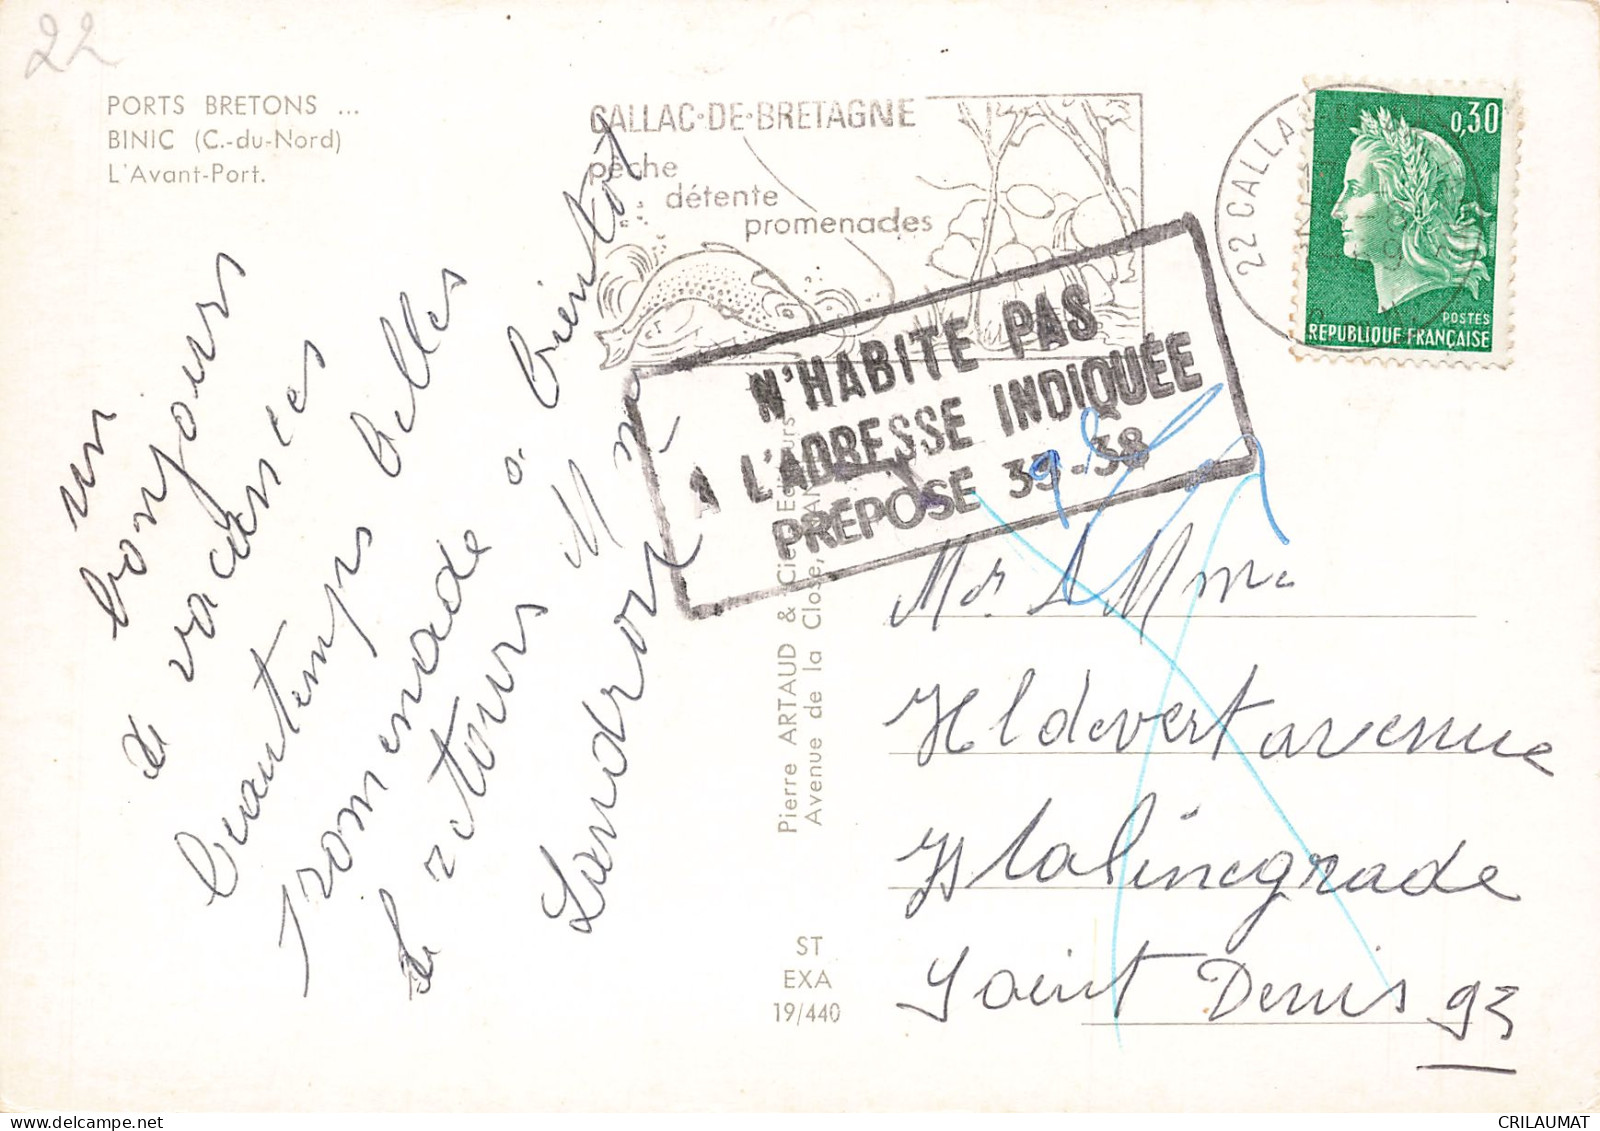 22
PORTS BRETONS ...
BINIC (C.-du-Nord)
L'Avant-Port.
CALLAC-DE-BRETAGNE
pêche
détente
promenades
22 CALLA
0,30
POSTES
REPUBLIQUE FRANÇAISE
N'HABITE PAS
A L'ADRESSE INDIQUÉE
PRÉPOSÉ 39-38
un
bonjours
de vacances
beautemps belles
promenade a bientot
le retours M me
Landron
Pierre ARTAUD & Cie
Avenue de la Close,
ST
EXA
19/440
Mr & Mme
Hldevert avenue
Stalinegrade
Saint Denis 93
CRILAUMAT